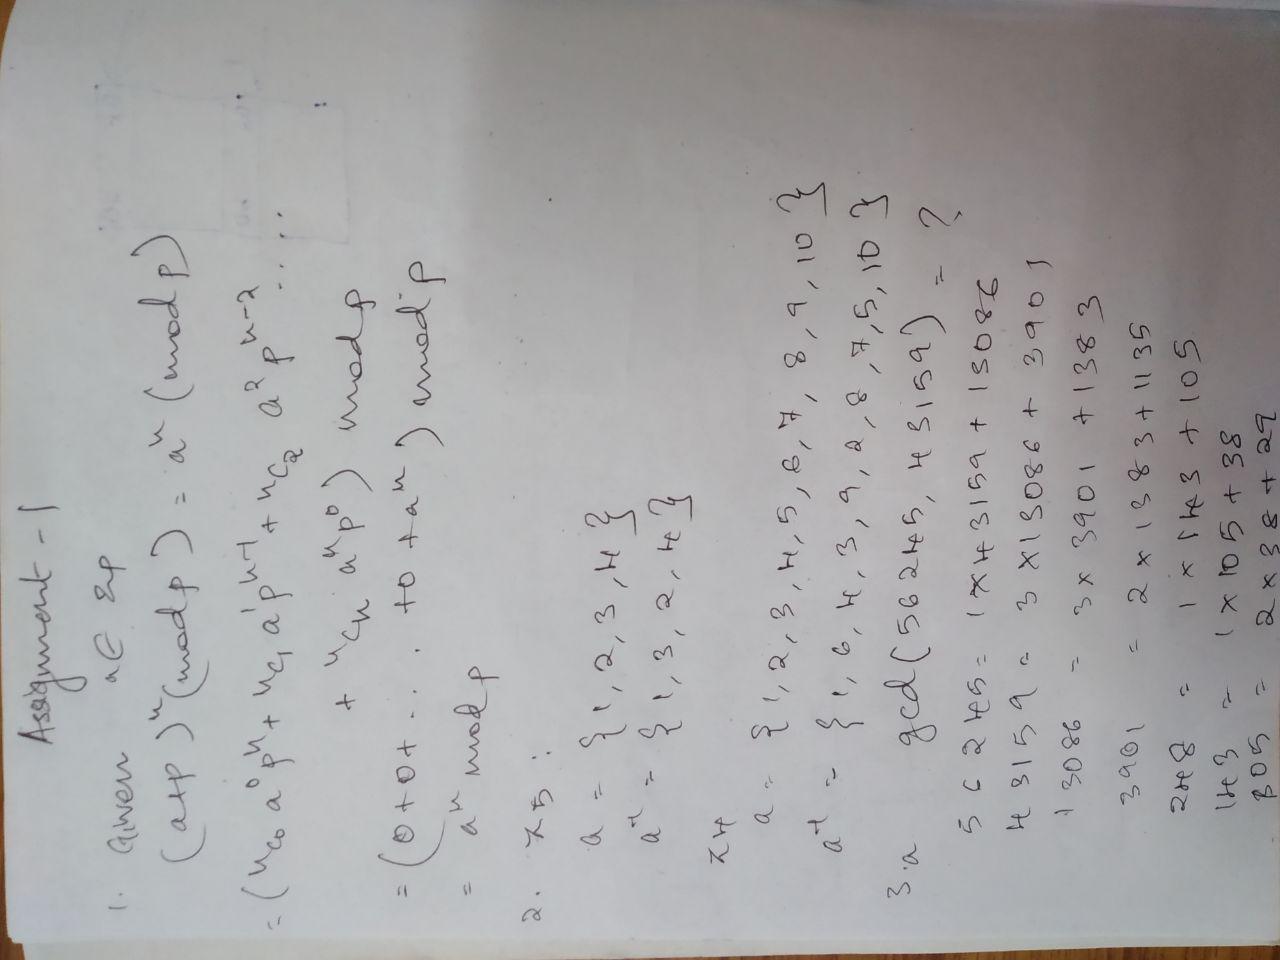 Assignment - 1
1. Given a ∈ Zp
(a+p)ⁿ (mod p) = aⁿ (mod p)
= (ⁿC₀ a⁰pⁿ + ⁿC₁ a¹pⁿ⁻¹ + ⁿC₂ a² pⁿ⁻² .....
+ ⁿCₙ aⁿp⁰) mod p
= (0+0+... +0 +aⁿ) mod p
= aⁿ mod p
2. Z5 :
a = {1, 2, 3, 4}
a⁻¹ = {1, 3, 2, 4}
Z11
a = {1, 2, 3, 4, 5, 6, 7, 8, 9, 10}
a⁻¹ = {1, 6, 4, 3, 9, 2, 8, 7, 5, 10}
3.a gcd(56245, 43159) = ?
56245 = 1 x 43159 + 13086
43159 = 3 x 13086 + 3901
13086 = 3 x 3901 + 1383
3901 = 2 x 1383 + 1135
248 = 1 x 143 + 105
143 = 1 x 105 + 38
105 = 2 x 38 + 29